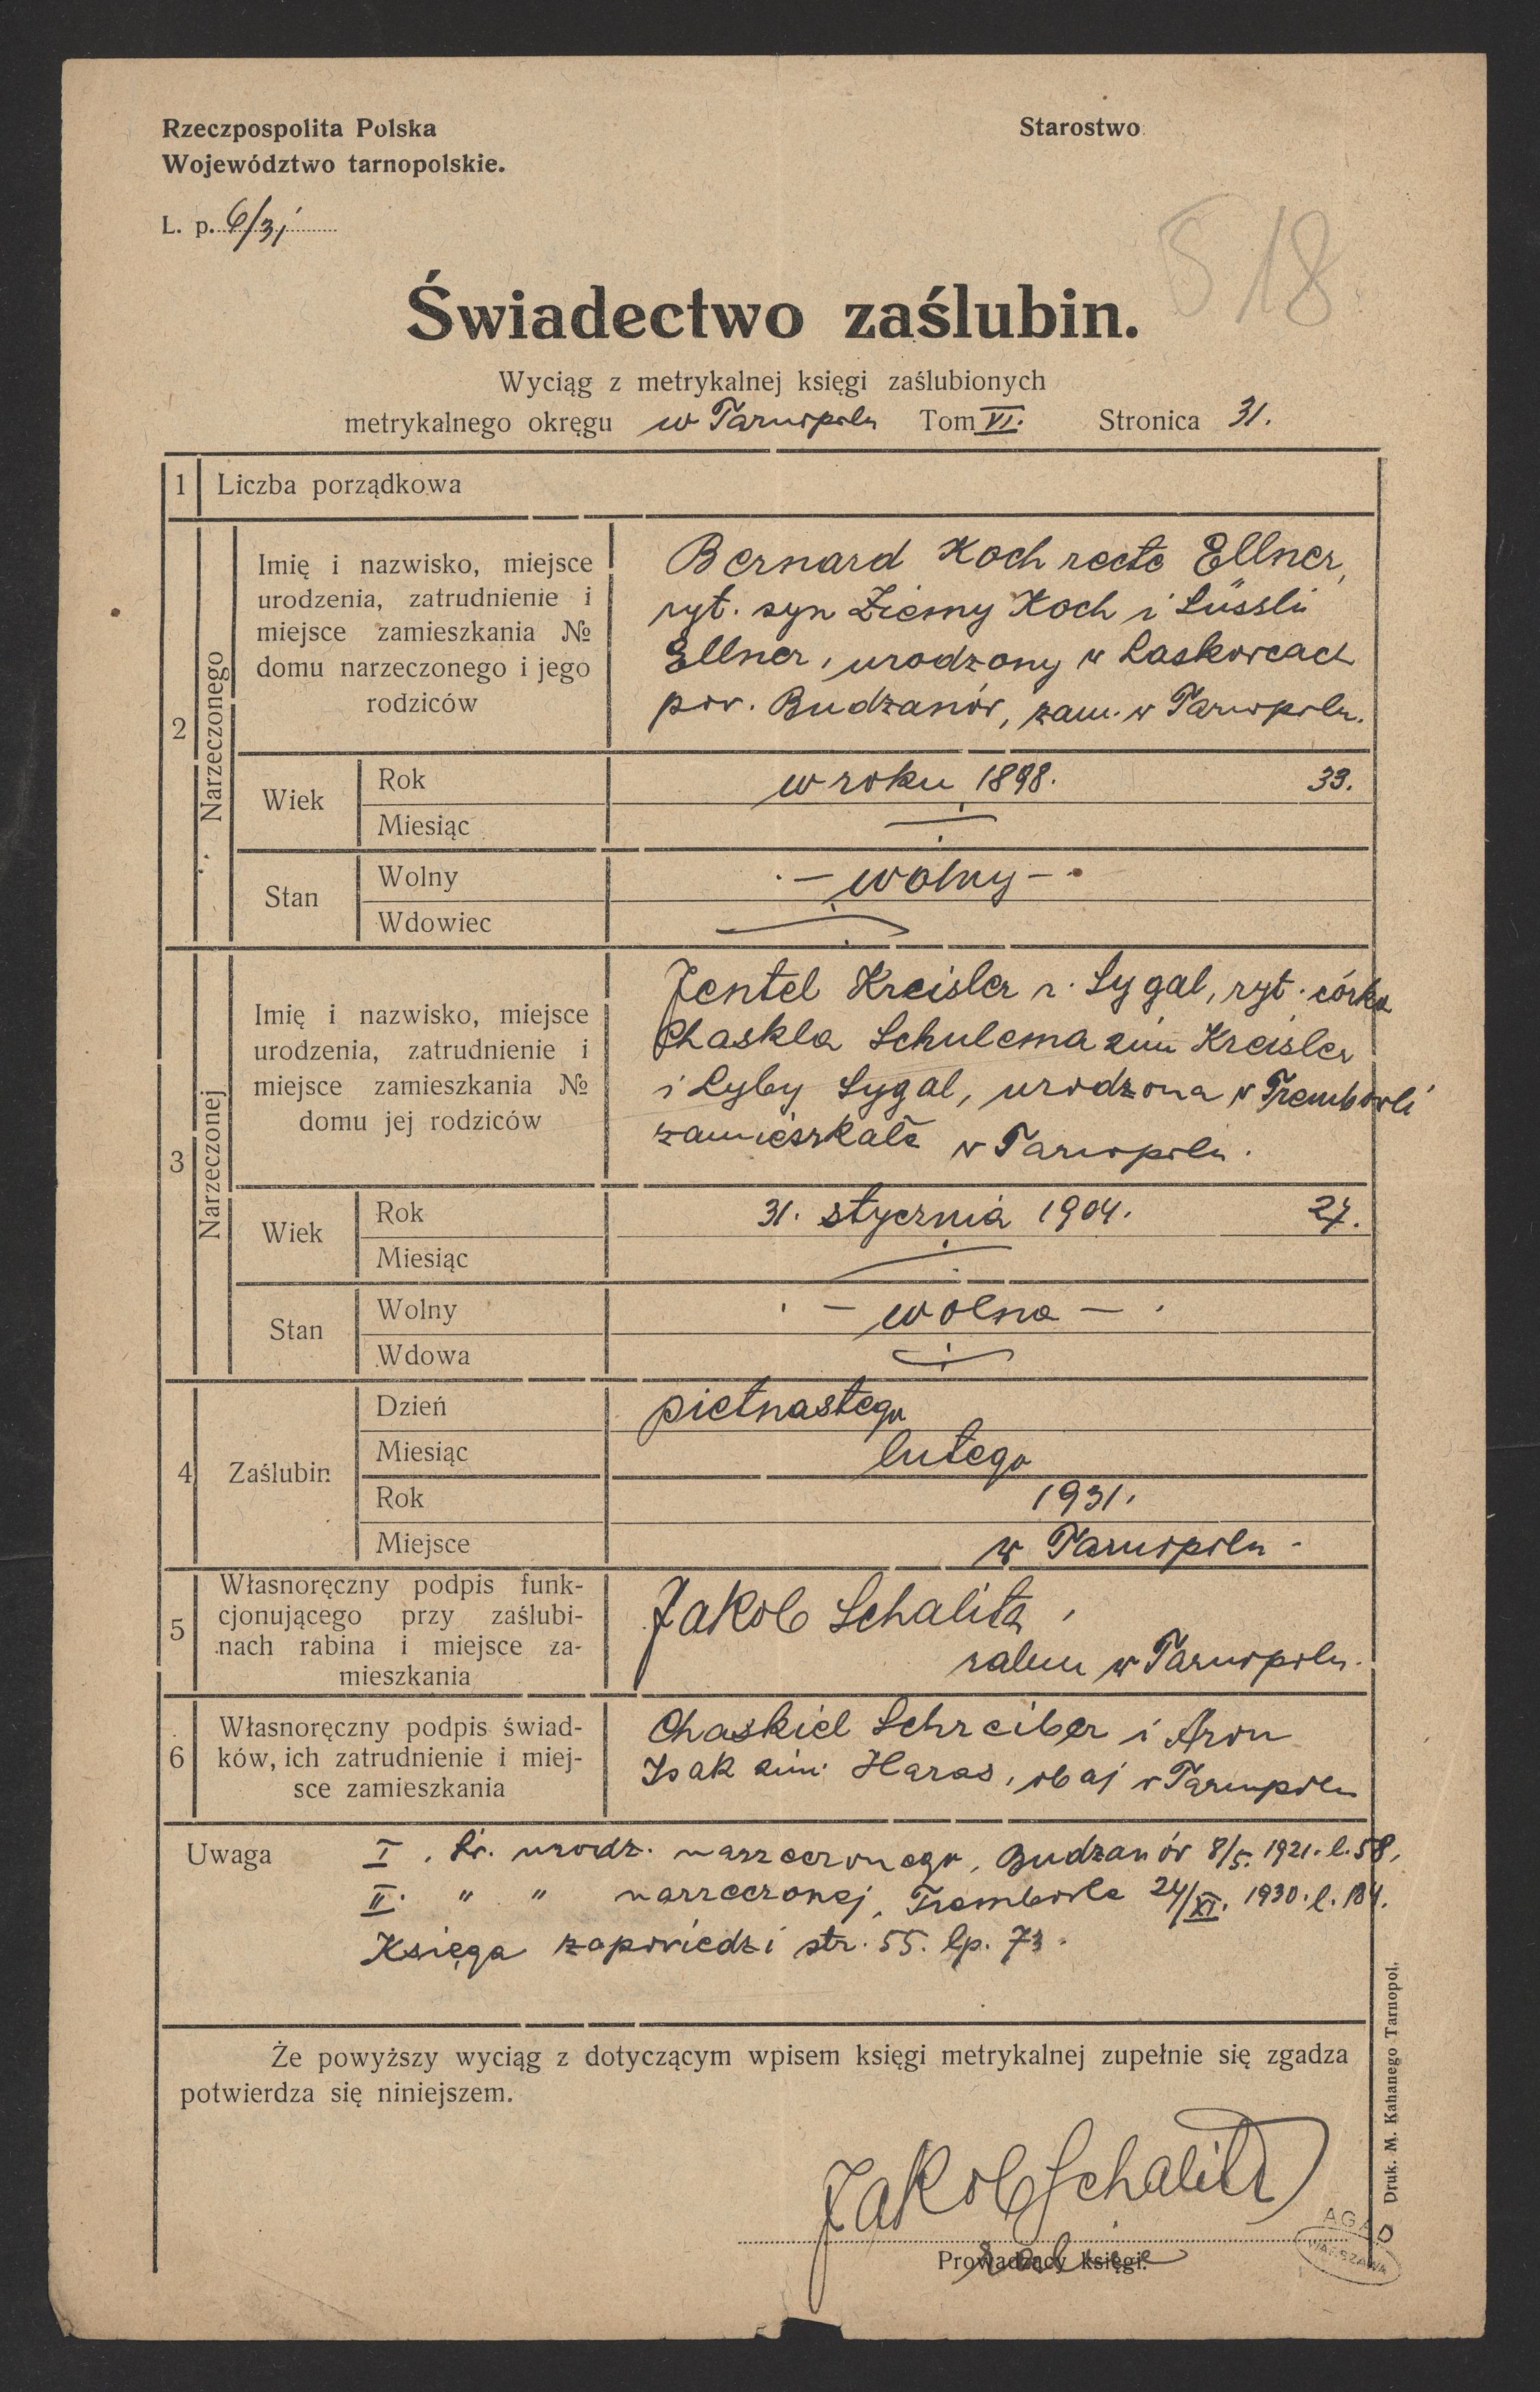 Rzeczpospolita Polska
Województwo tarnopolskie.
Starostwo
L. p. 6/31
518
Świadectwo zaślubin.
Wyciąg z metrykalnej księgi zaślubionych
metrykalnego okręgu w Tarnopolu Tom VI. Stronica 31.
1 Liczba porządkowa
2
Narzeczonego
Imię i nazwisko, miejsce
urodzenia, zatrudnienie i
miejsce zamieszkania №
domu narzeczonego i jego
rodziców
Bernard Koch recte Ellner,
ryt. syn Ziemy Koch i Lüssli
Ellner, urodzony w Laskowcach
pow. Budzanów, zam. w Tarnopolu.
Wiek
Rok
w roku 1898. 33.
Miesiąc
Stan
Wolny
- wolny -
Wdowiec
3
Narzeczonej
Imię i nazwisko, miejsce
urodzenia, zatrudnienie i
miejsce zamieszkania №
domu jej rodziców
Jentel Kreisler r. Sygal, ryt. córka
Chaskla Schulema 2im Kreisler
i Lyby Sygal, urodzona w Trembowli
zamieszkała w Tarnopolu.
Wiek
Rok
31. stycznia 1904. 27.
Miesiąc
Stan
Wolny
- wolna -
Wdowa
4 Zaślubin
Dzień
pietnastego
Miesiąc
lutego
Rok
1931.
Miejsce
w Tarnopolu -
5
Własnoręczny podpis funk-
cjonującego przy zaślubi-
nach rabina i miejsce za-
mieszkania
Jakob Schalita,
rabin w Tarnopolu.
6
Własnoręczny podpis świad-
ków, ich zatrudnienie i miej-
sce zamieszkania
Chaskiel Schreiber i Aron
Isak 2im. Haras, obaj w Tarnopolu
Uwaga
I. Św. urodz. narzeczonego, Budzanów 8/5. 1921. l. 58,
II. " " narzeczonej, Trembowla 24/XI. 1930. l. 184.
Księga zapowiedzi str. 55. lp. 73.
Że powyższy wyciąg z dotyczącym wpisem księgi metrykalnej zupełnie się zgadza
potwierdza się niniejszem.
Jakob Schalita
rabin
Prowadzący księgi.
Druk. M. Kahanego Tarnopol.
AGAD
WARSZAWA